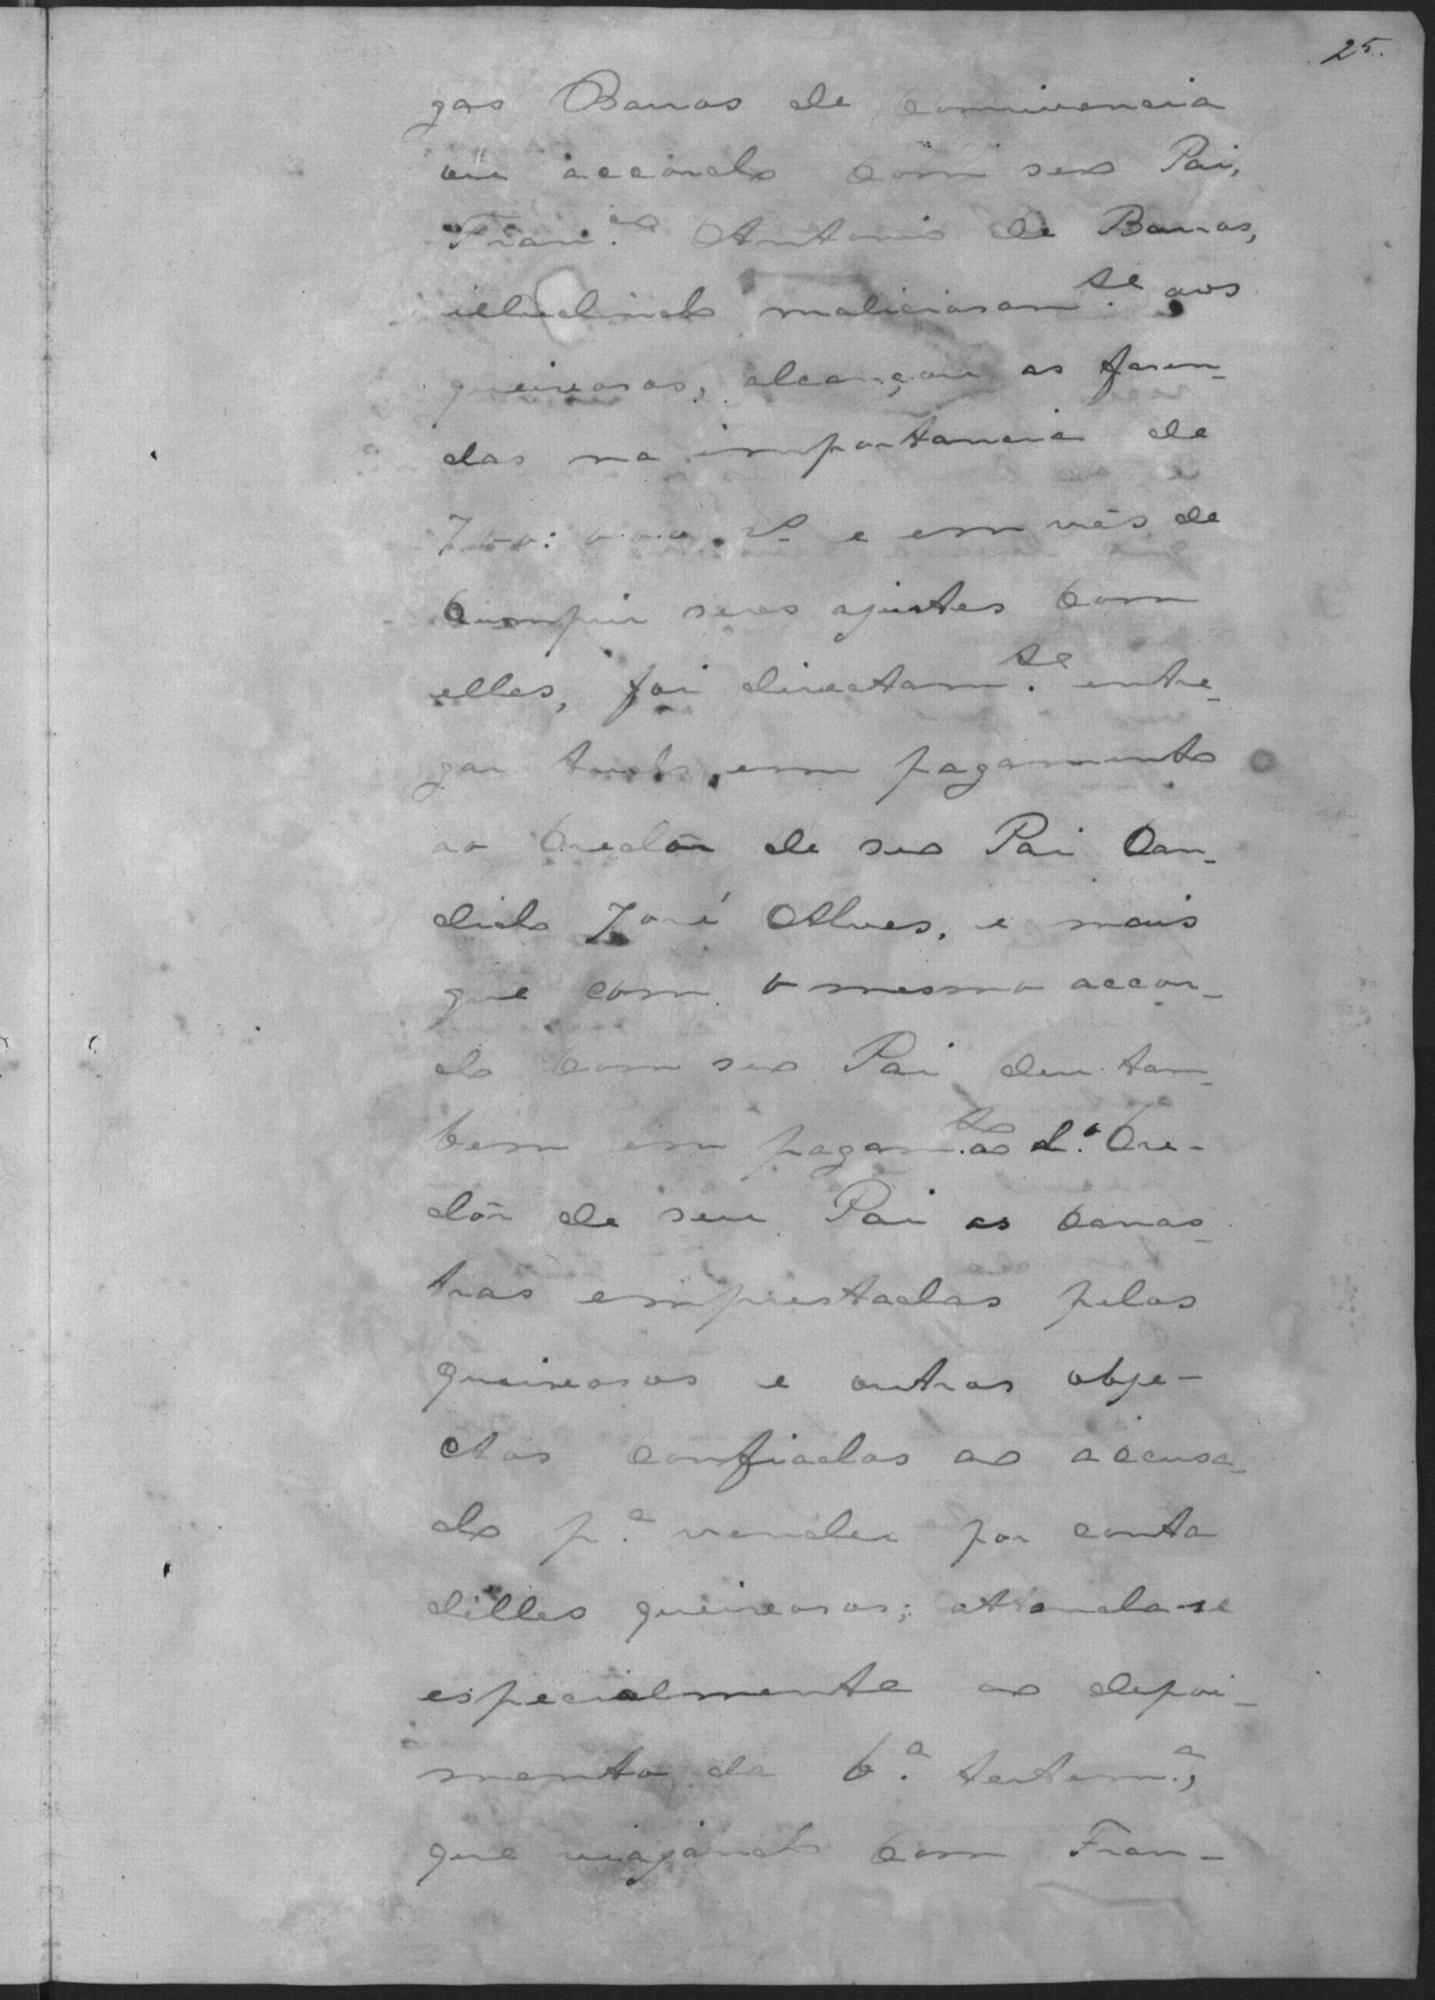 25.
gas Barros de connivencia
ou accordo com seo Pai,
Fran.co Antonio de Barros,
illudindo maliciosam.te aos
queixosos, alcançou as fasen-
das na importancia de
700:000.rs e em vês de
cumprir seus ajustes com
elles, foi directam.te entre-
gar tudo, em pagamento
ao Credôr de seo Pai Can-
dido José Alves, e mais
que com o mesmo accor-
do com seo Pai deu tam-
bem em pagam.to ao d.o Cre-
dôr de seu Pai as canas-
tras emprestadas pelos
queixosos e outros obje-
ctos confiados ao accusa-
do p.a vender por conta
d'elles queixosos; attenda-se
especialmente ao depoi-
mento da 6.a testem.a,
que viajando com Fran-